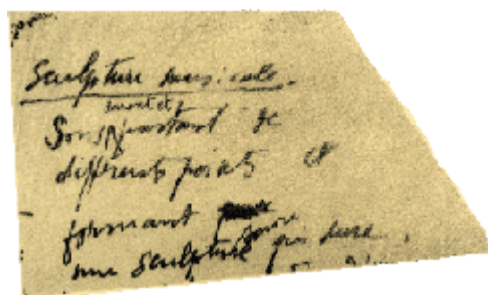 Sculpture musicale.
Sons partant de
différents points et
formant
une sculpture sonore qui dure.